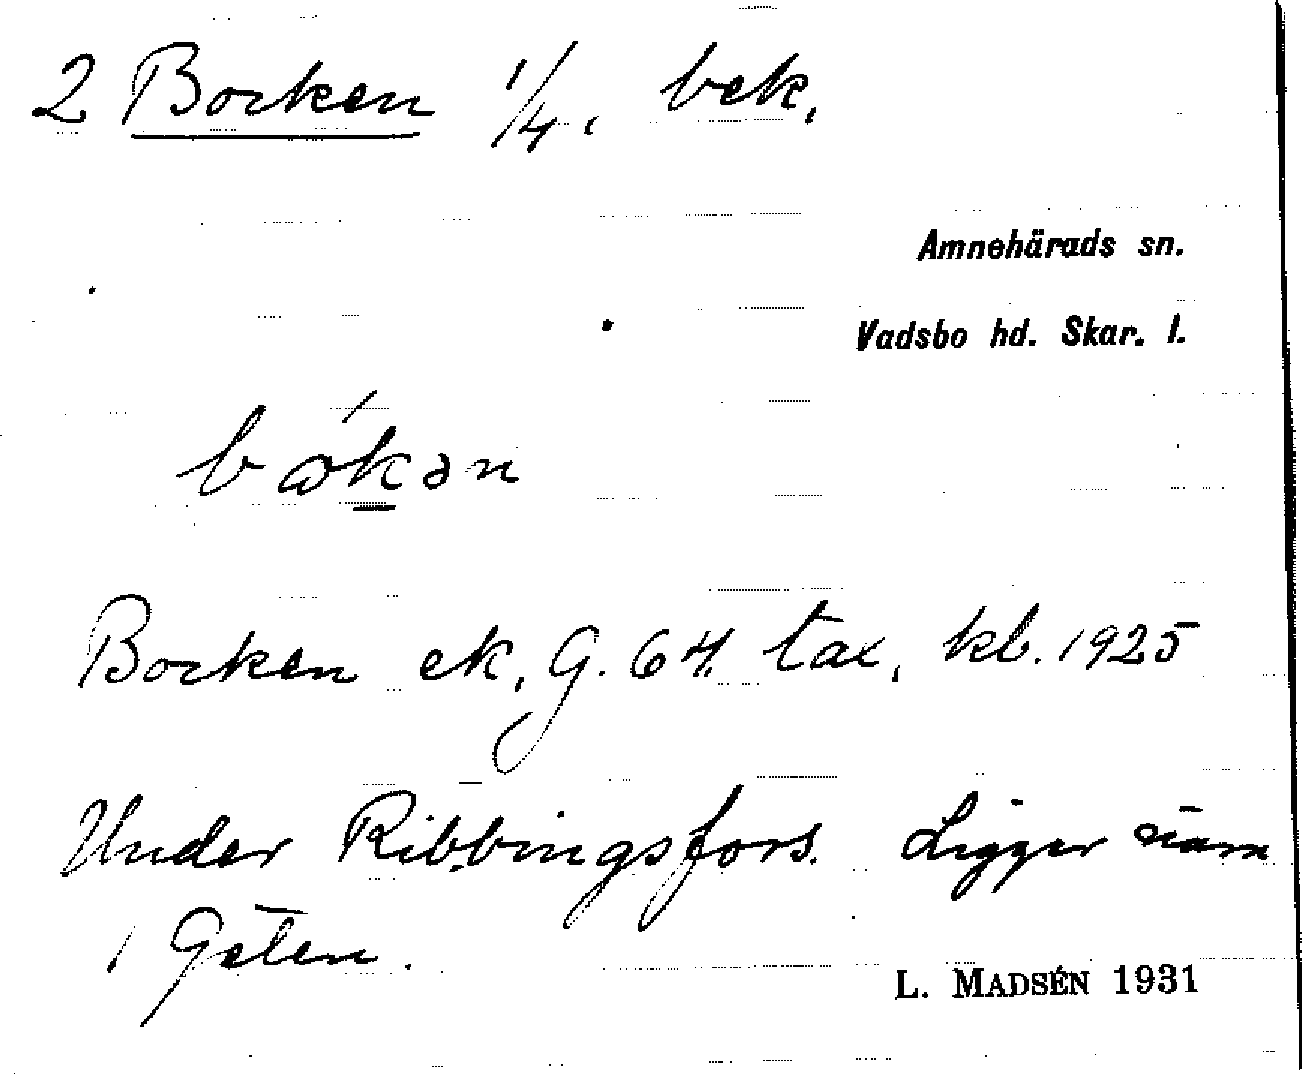 2 Borken 1/4, bek.
Amnehärads sn.
Vadsbo hd. Skar. l.
Borken ek. G. 64. tax. kb. 1925
Under Ribbingsfors. Ligger
L. MADSÉN 1931